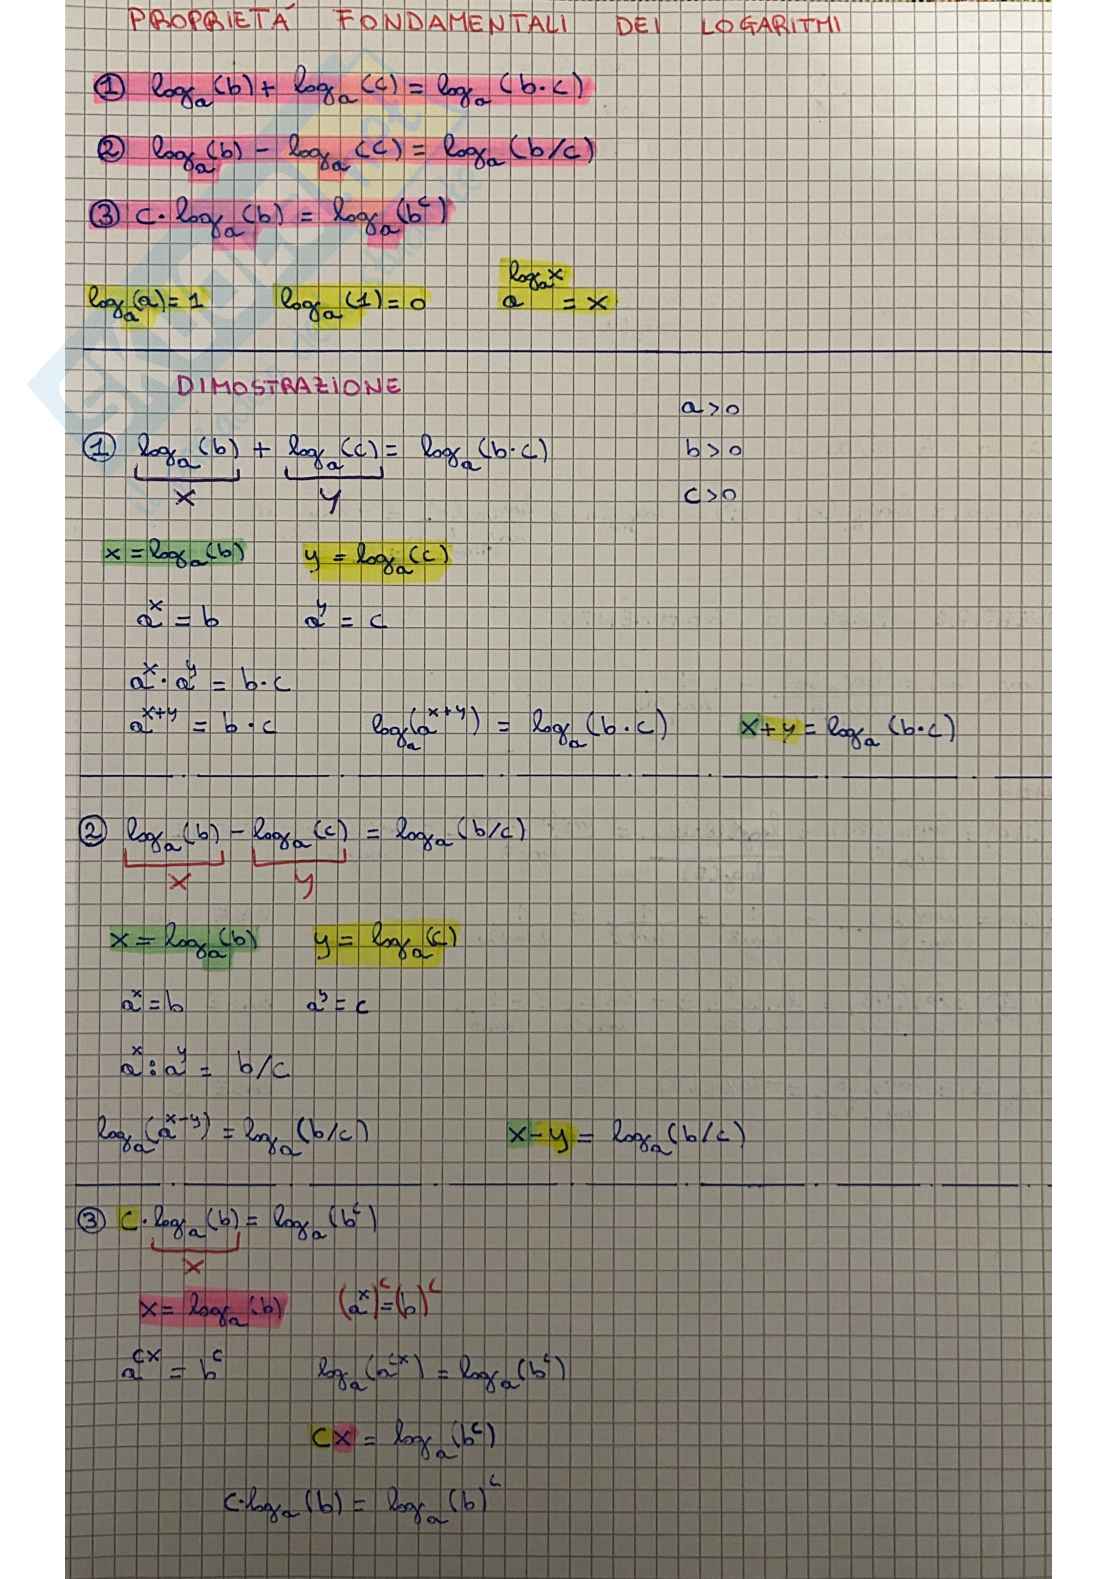 PROPRIETÁ FONDAMENTALI DEI LOGARITMI
① logₐ(b) + logₐ(c) = logₐ(b·c)
② logₐ(b) - logₐ(c) = logₐ(b/c)
③ c·logₐ(b) = logₐ(b^c)
logₐ(a) = 1 logₐ(1) = 0 a^(logₐx) = x
DIMOSTRAZIONE
a>0
① logₐ(b) + logₐ(c) = logₐ(b·c) b>0
x y c>0
x = logₐ(b) y = logₐ(c)
a^x = b a^y = c
a^x · a^y = b·c
a^(x+y) = b·c logₐ(a^(x+y)) = logₐ(b·c) x+y = logₐ(b·c)
② logₐ(b) - logₐ(c) = logₐ(b/c)
x y
x = logₐ(b) y = logₐ(c)
a^x = b a^y = c
a^x : a^y = b/c
logₐ(a^(x-y)) = logₐ(b/c) x-y = logₐ(b/c)
③ c·logₐ(b) = logₐ(b^c)
x
x = logₐ(b) (a^x)^c = (b)^c
a^(cx) = b^c logₐ(a^(cx)) = logₐ(b^c)
cx = logₐ(b^c)
c·logₐ(b) = logₐ(b)^c